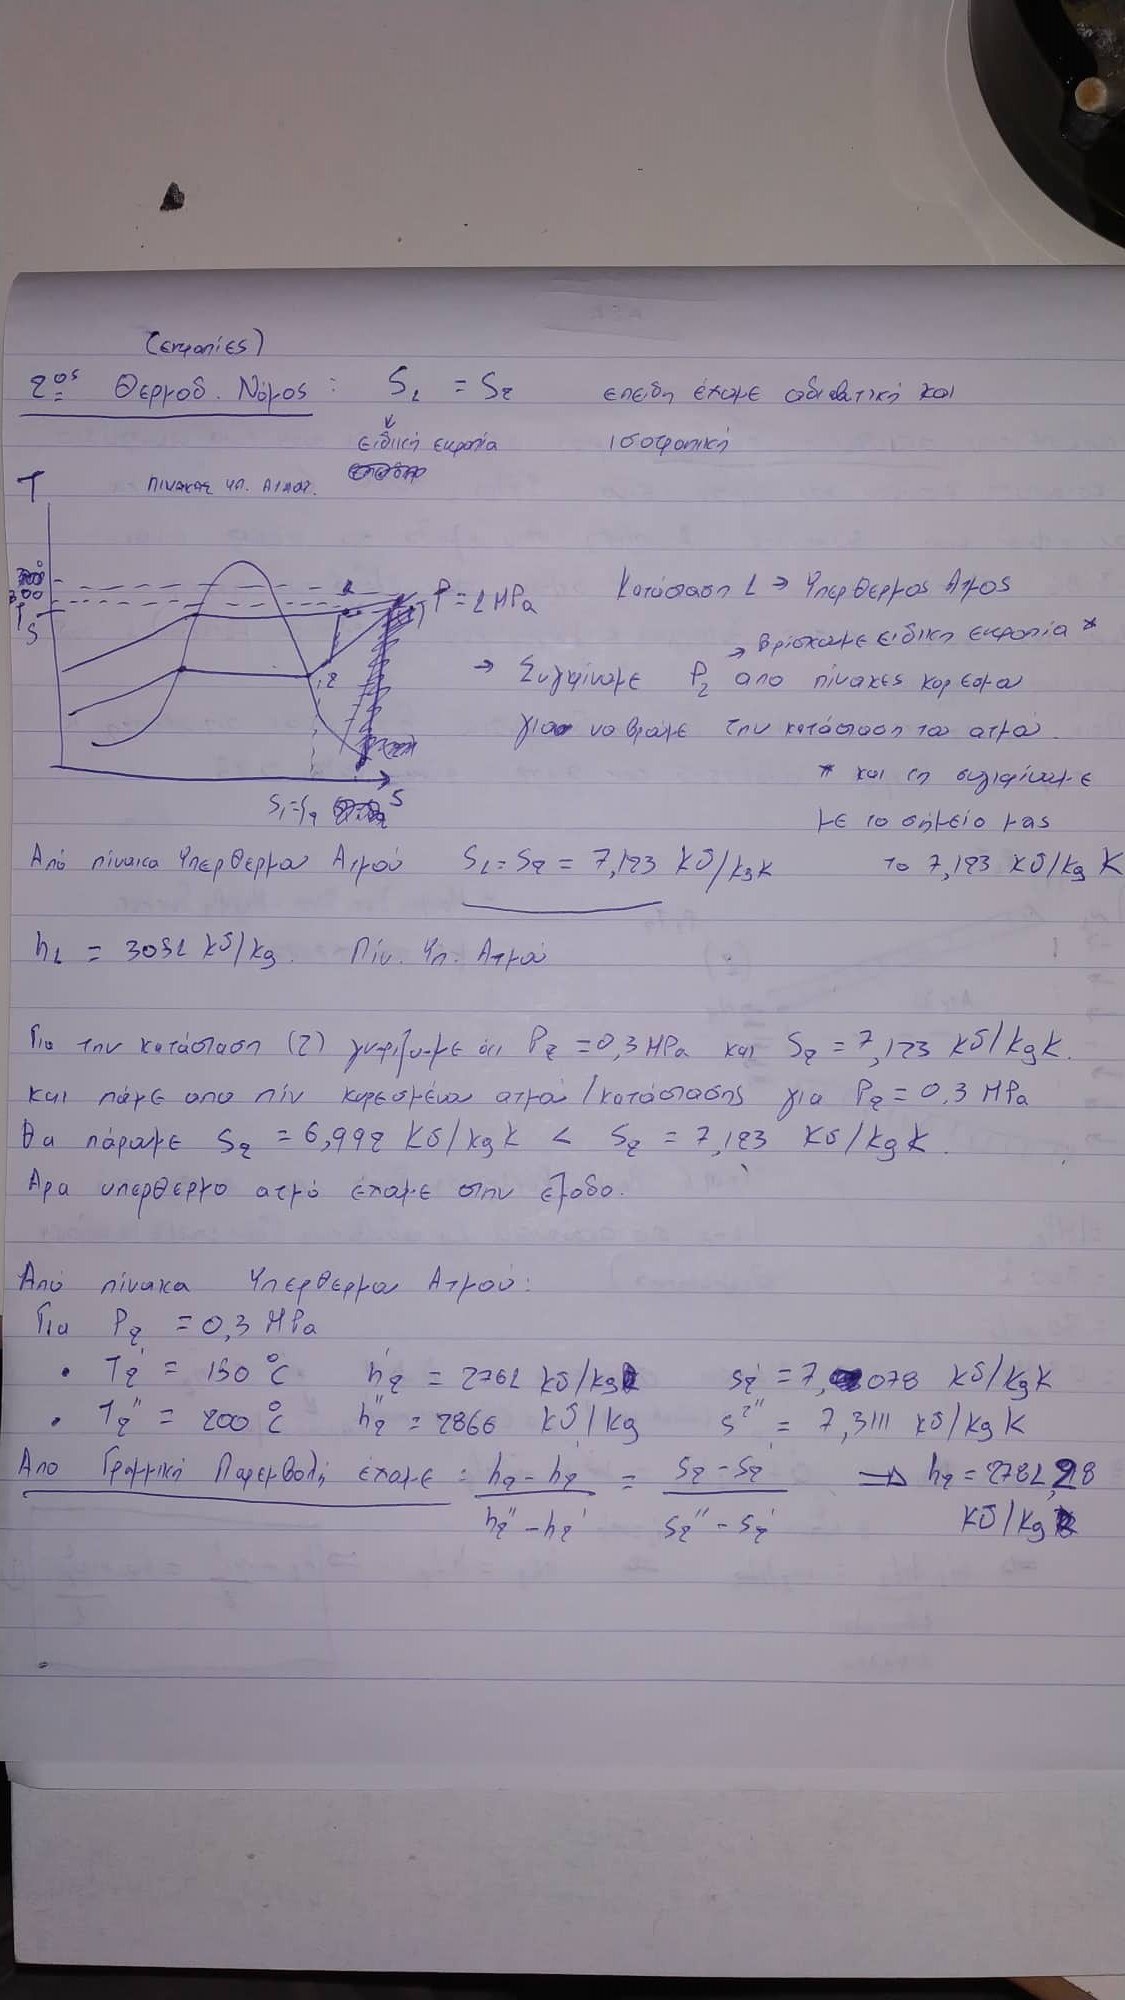 (εντροπίες)
2ος Θερμοδ. Νόμος : S1 = S2 επειδη έχουμε αδιαβατική και
ειδική εντροπία ισοτροπική
T πινακας υπ. Ατμού.
300
Ts
1 P = 1 MPa Κατάσταση 1 → Υπερθερμος Ατμος
→ Βρίσκουμε ειδικη εντροπία *
2 → Συγκρίνουμε P2 απο πίνακες κορεσμου
για να βρουμε την κατάσταση του ατμού.
* και τη συγκρίνουμε
S1=S2 S
με το σημείο μας
Από πίνακα Υπερθερμου Ατμού S1 = S2 = 7,123 kJ/kgK το 7,123 kJ/kg K
h1 = 3051 kJ/kg. Πιν. Υπ. Ατμού
Για την κατάσταση (2) γνωρίζουμε ότι P2 = 0,3 MPa και S2 = 7,123 kJ/kgK.
και πάμε απο πιν κορεσμένου ατμού /κατάστασης για P2 = 0,3 MPa
θα πάρουμε S2 = 6,992 kJ/kgK < S2 = 7,123 kJ/kgK.
Αρα υπερθερμο ατμό έχουμε στην έξοδο.
Από πίνακα Υπερθερμου Ατμού:
Για P2 = 0,3 MPa
• T2' = 150 °C h2' = 2761 kJ/kg s2' = 7,078 kJ/kgK
• T2'' = 200 °C h2'' = 2866 kJ/kg s2'' = 7,3111 kJ/kgK
Απο Γραμμική Παρεμβολή έχουμε : h2 - h2' / h2'' - h2' = s2 - s2' / s2'' - s2' ⇒ h2 = 2781,28
kJ/kg